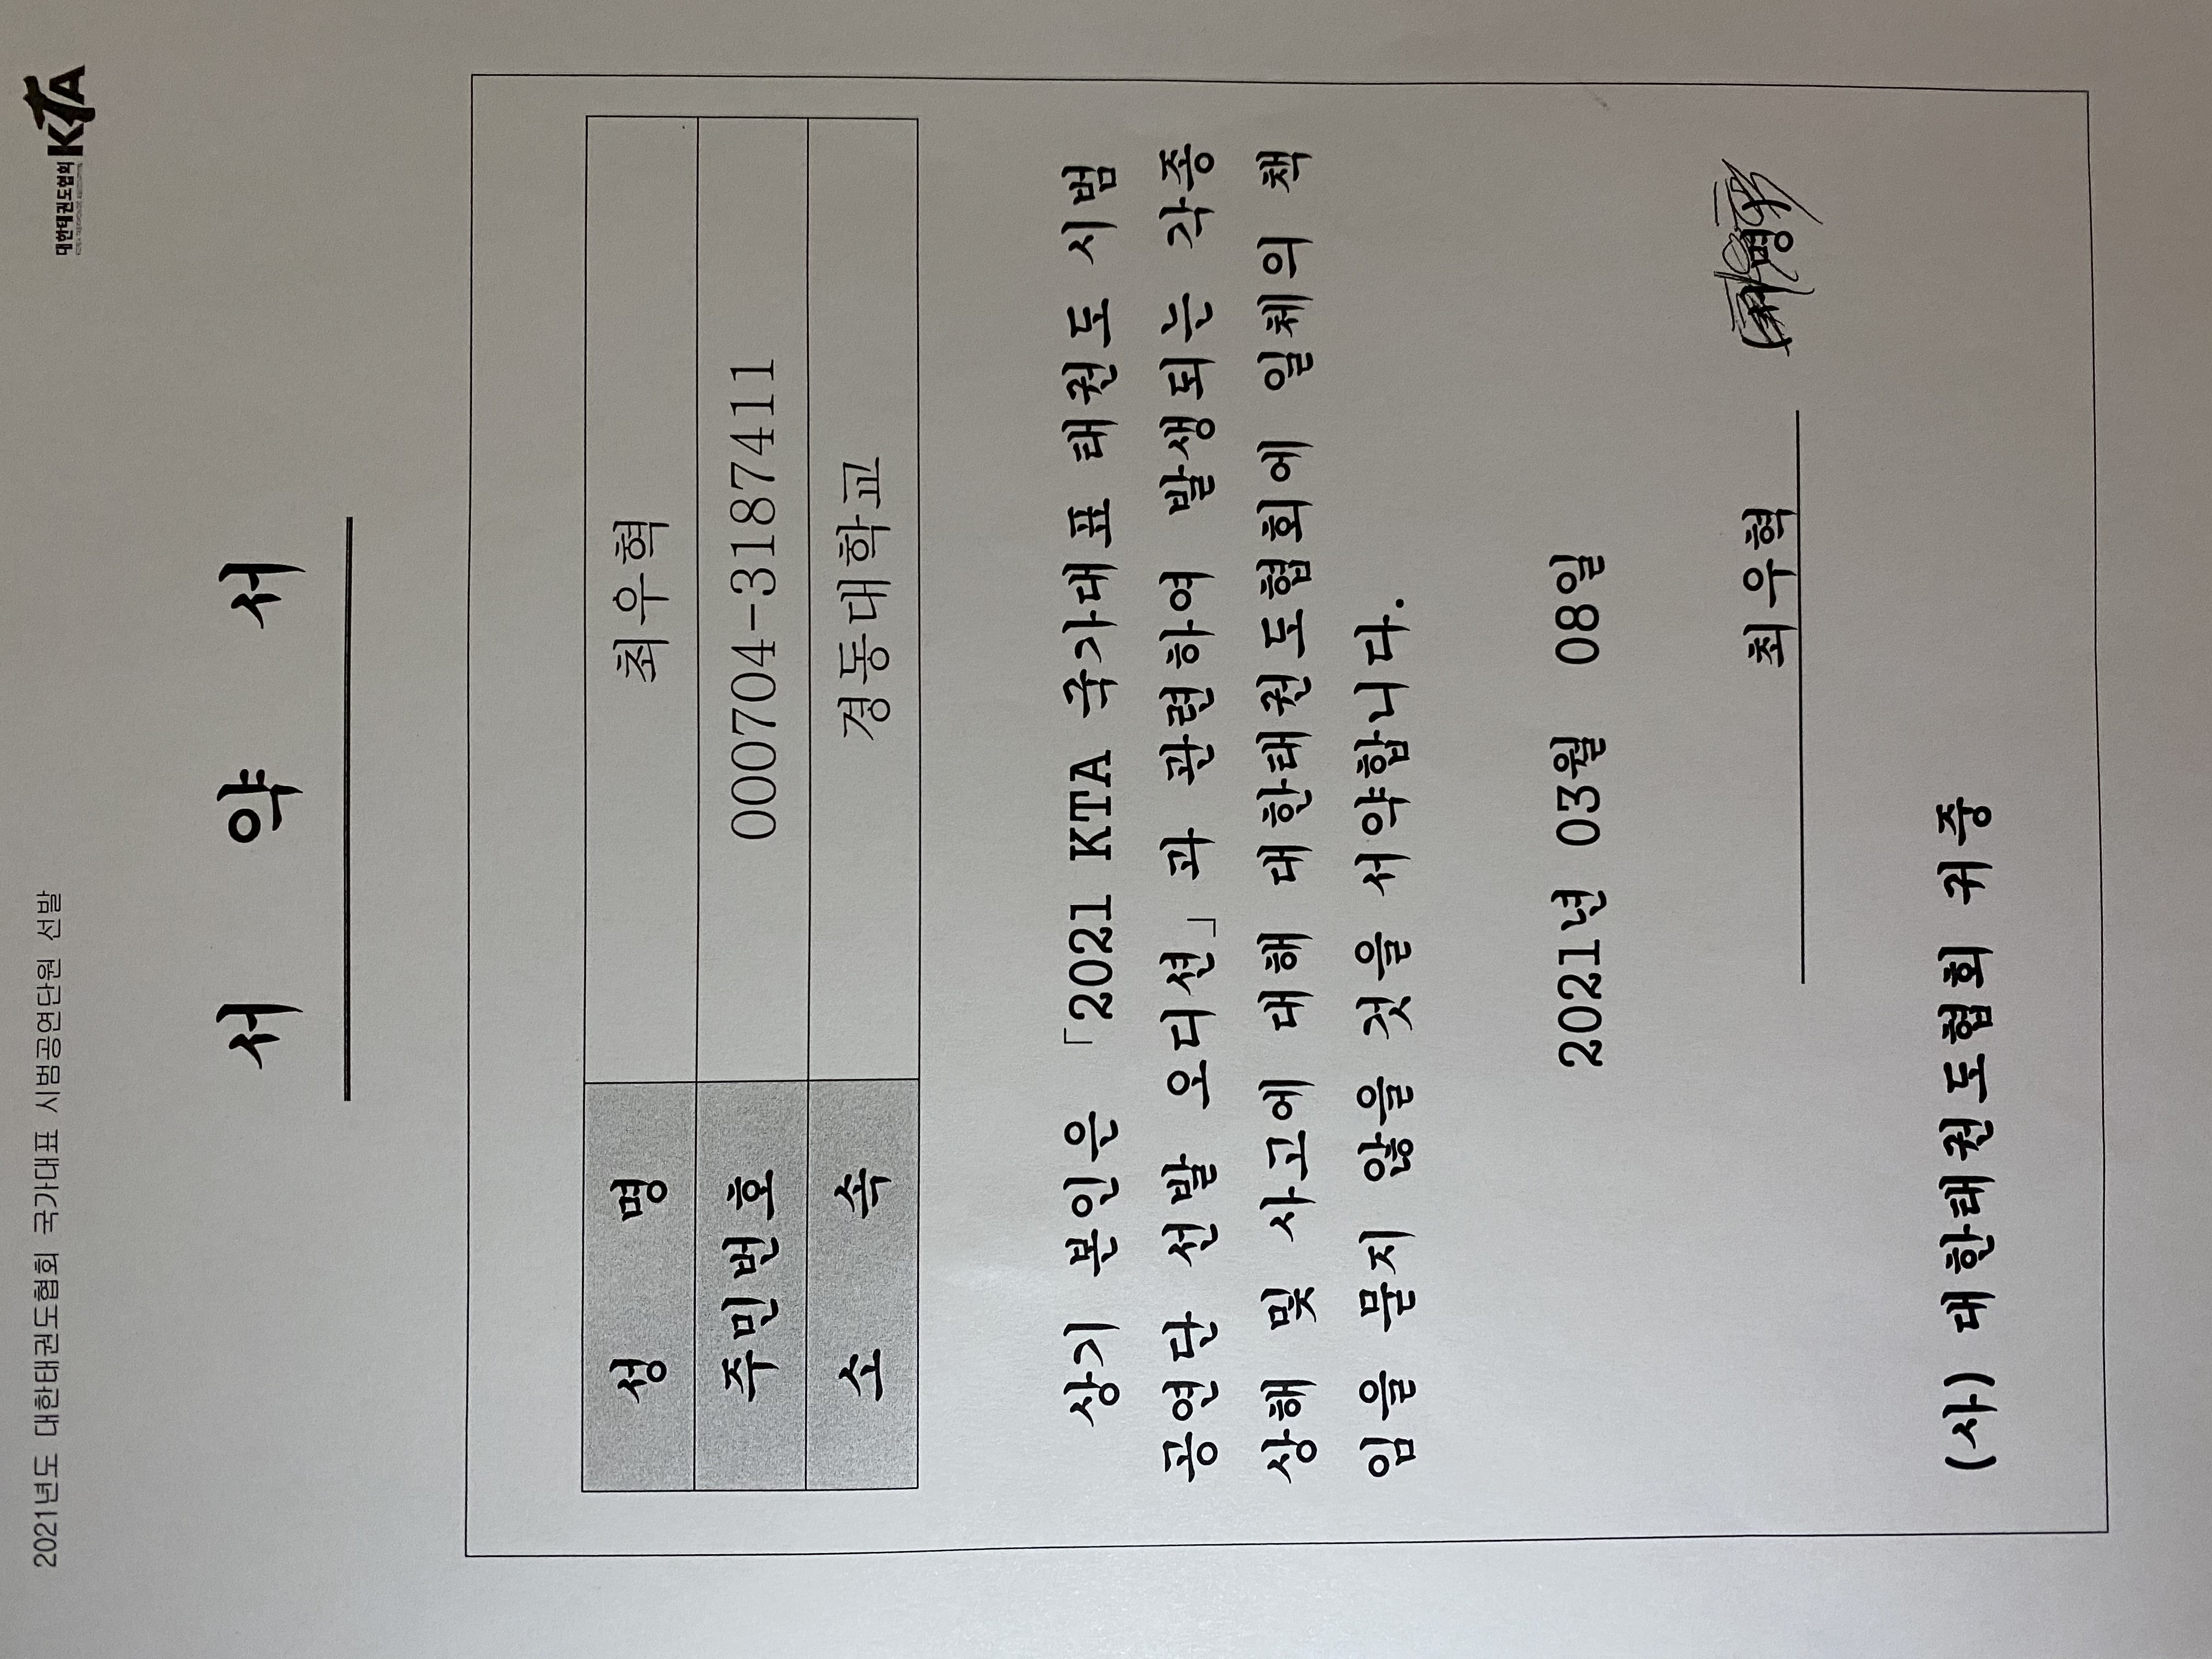 2021년도 대한태권도협회 국가대표 시범공연단원 선발
대한태권도협회 KTA
서 약 서
성 명 최우혁
주민번호 000704-3187411
소 속 경동대학교
상기 본인은 「2021 KTA 국가대표 태권도 시범
공연단 선발 오디션」과 관련하여 발생되는 각종
상해 및 사고에 대해 대한태권도협회에 일체의 책
임을 묻지 않을 것을 서약합니다.
2021년 03월 08일
최우혁 (서명)
(사) 대한태권도협회 귀중